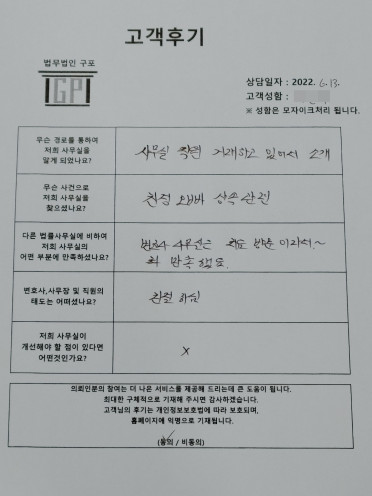 고객후기
법무법인 구포
GP
상담일자 : 2022. 6. 13.
고객성함 :
※ 성함은 모자이크처리 됩니다.
무슨 경로를 통하여
저희 사무실을
알게 되었나요?
사무실 직원 거래하고 있어서 소개
무슨 사건으로
저희 사무실을
찾으셨나요?
친정 오빠 상속 관련
다른 법률사무실에 비하여
저희 사무실의
어떤 부분에 만족하셨나요?
변호사 사무실은 처음 방문 이라서~
변호사,사무장 및 직원의
태도는 어떠셨나요?
친절 하심
저희 사무실이
개선해야 할 점이 있다면
어떤것인가요?
X
의뢰인분의 참여는 더 나은 서비스를 제공해 드리는데 큰 도움이 됩니다.
최대한 구체적으로 기재해 주시면 감사하겠습니다.
고객님의 후기는 개인정보보호법에 따라 보호되며,
홈페이지에 익명으로 기재됩니다.
(동의 / 비동의)